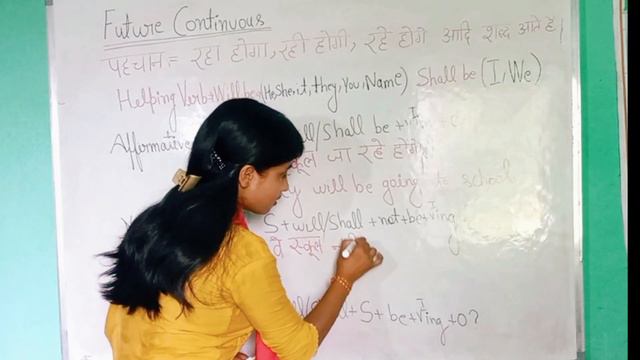 Future Continuous
पहचान = रहा होगा, रही होगी, रहे होंगे आदि शब्द आते हैं।
Helping Verb + Will be (He, She, it, they, You, Name) Shall be (I, We)
Affirmative /Shall be + V¹ing +
जा रहे होंगे
will be going to school
S + will/Shall + not + be + V¹ing
वे स्कूल
+ S + be + V¹ing + O?